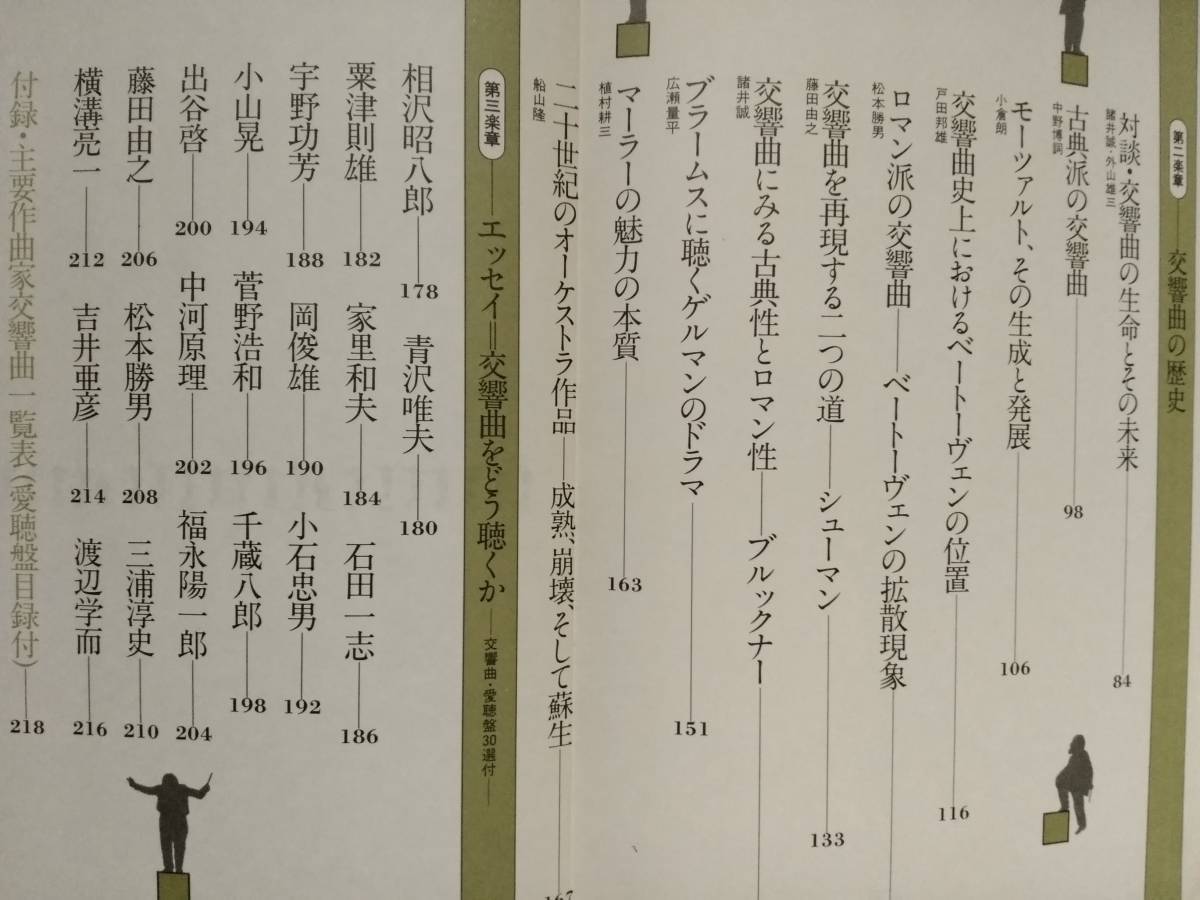 第二楽章——交響曲の歴史
対談・交響曲の生命とその未来——84
諸井誠・外山雄三
古典派の交響曲——98
中野博詞
モーツァルト、その生成と発展——106
小倉朗
交響曲史上におけるベートーヴェンの位置——116
戸田邦雄
ロマン派の交響曲——ベートーヴェンの拡散現象
松本勝男
交響曲を再現する二つの道——シューマン——133
藤田由之
交響曲にみる古典性とロマン性——ブルックナー——
諸井誠
ブラームスに聴くゲルマンのドラマ——151
広瀬量平
マーラーの魅力の本質——163
植村耕三
二十世紀のオーケストラ作品——成熟、崩壊、そして蘇生——167
船山隆
第三楽章——エッセイ=交響曲をどう聴くか——交響曲・愛聴盤30選付——
相沢昭八郎——178 青沢唯夫——180
粟津則雄——182 家里和夫——184 石田一志——186
宇野功芳——188 岡俊雄——190 小石忠男——192
小山晃——194 菅野浩和——196 千蔵八郎——198
出谷啓——200 中河原理——202 福永陽一郎——204
藤田由之——206 松本勝男——208 三浦淳史——210
横溝亮一——212 吉井亜彦——214 渡辺学而——216
付録・主要作曲家交響曲一覧表(愛聴盤目録付)——218